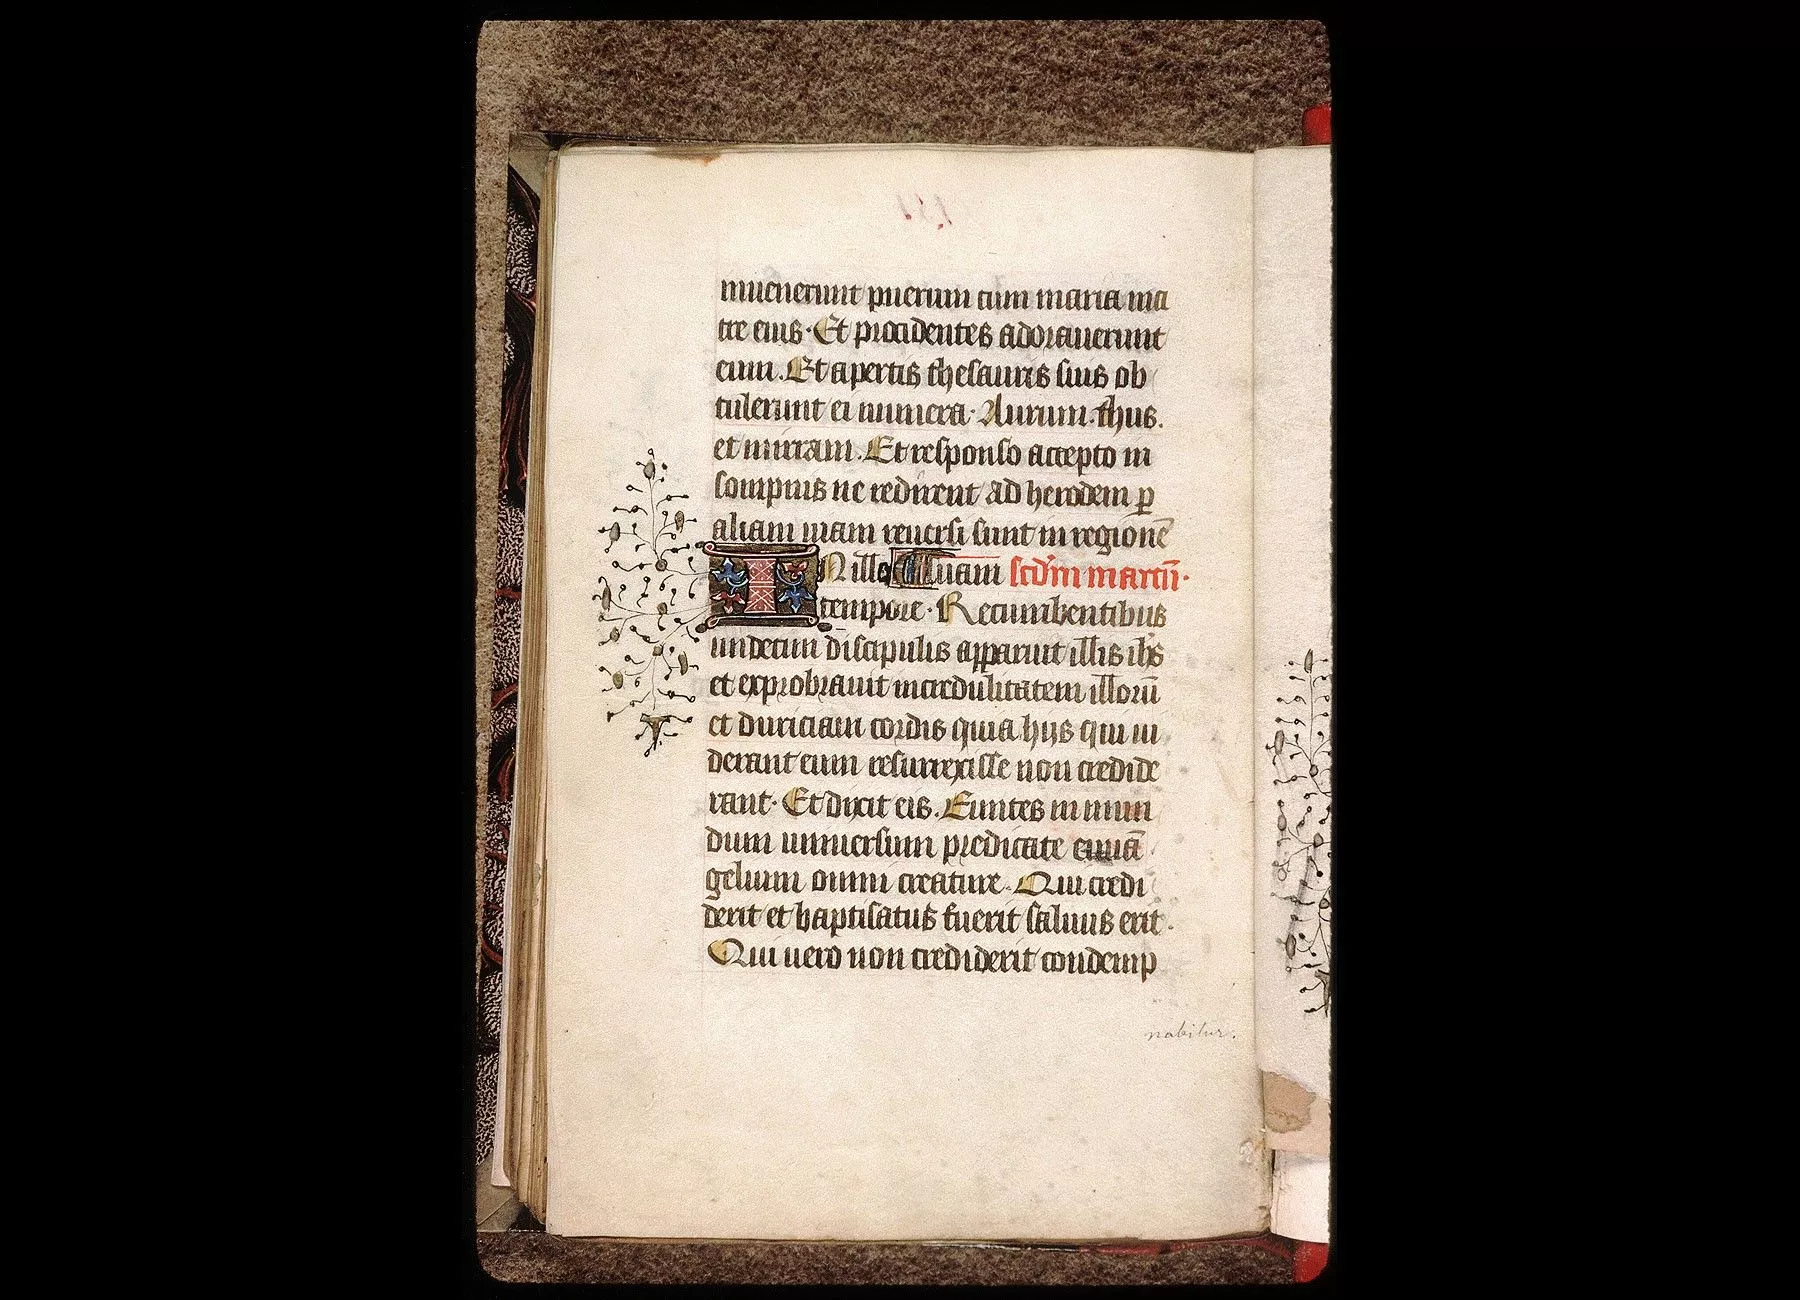 inuenerunt puerum cum maria ma
tre eius. Et procidentes adorauerunt
eum. Et apertis thesauris suis ob
tulerunt ei munera. Aurum. thus.
et mirram. Et responso accepto in
sompnis ne redirent ad herodem ꝑ
aliam uiam reuersi sunt in regionē
IN illo tuam scd'm marcū.
tempore. Recumbentibus
undecim discipulis apparuit illis ihs
et exprobrauit incredulitatem illorū
et duriciam cordis quia hijs qui ui
derant eum resurrexisse non credide
rant. Et dixit eis. Euntes in mun
dum uniuersum predicate euuā
gelium omni creature. Qui credi
derit et baptisatus fuerit saluus erit.
Qui uero non crediderit condemp
nabitur.